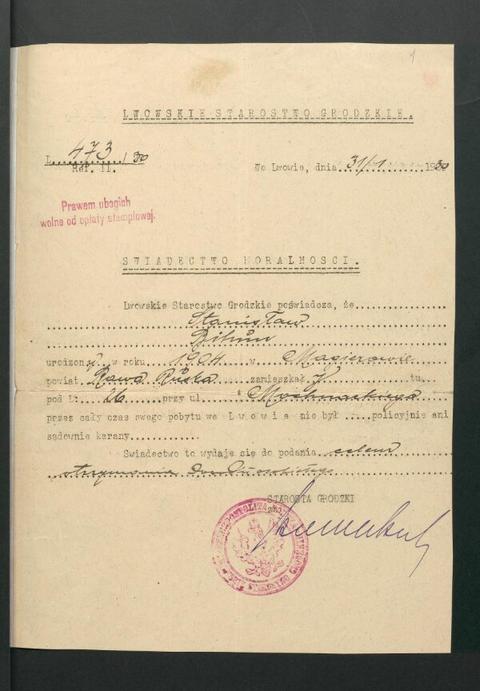 LWOWSKIE STAROSTWO GRODZKIE.
L. 473 / 30
Ref. II.
We Lwowie, dnia 31/1 1930
Prawem ubogich
wolne od opłaty stemplowej.
SWIADECTWO MORALNOSCI.
Lwowskie Starostwo Grodzkie poświadcza, że
Stanisław
urodzony w roku 1904 w Magierowie
powiat Rawa Ruska zamieszkał y tu
pod l: 26 przy ul.
przez cały czas swego pobytu we Lwowie nie był policyjnie ani
sądownie karany
Swiadectwo to wydaje się do podania celem
otrzymania
STAROSTA GRODZKI